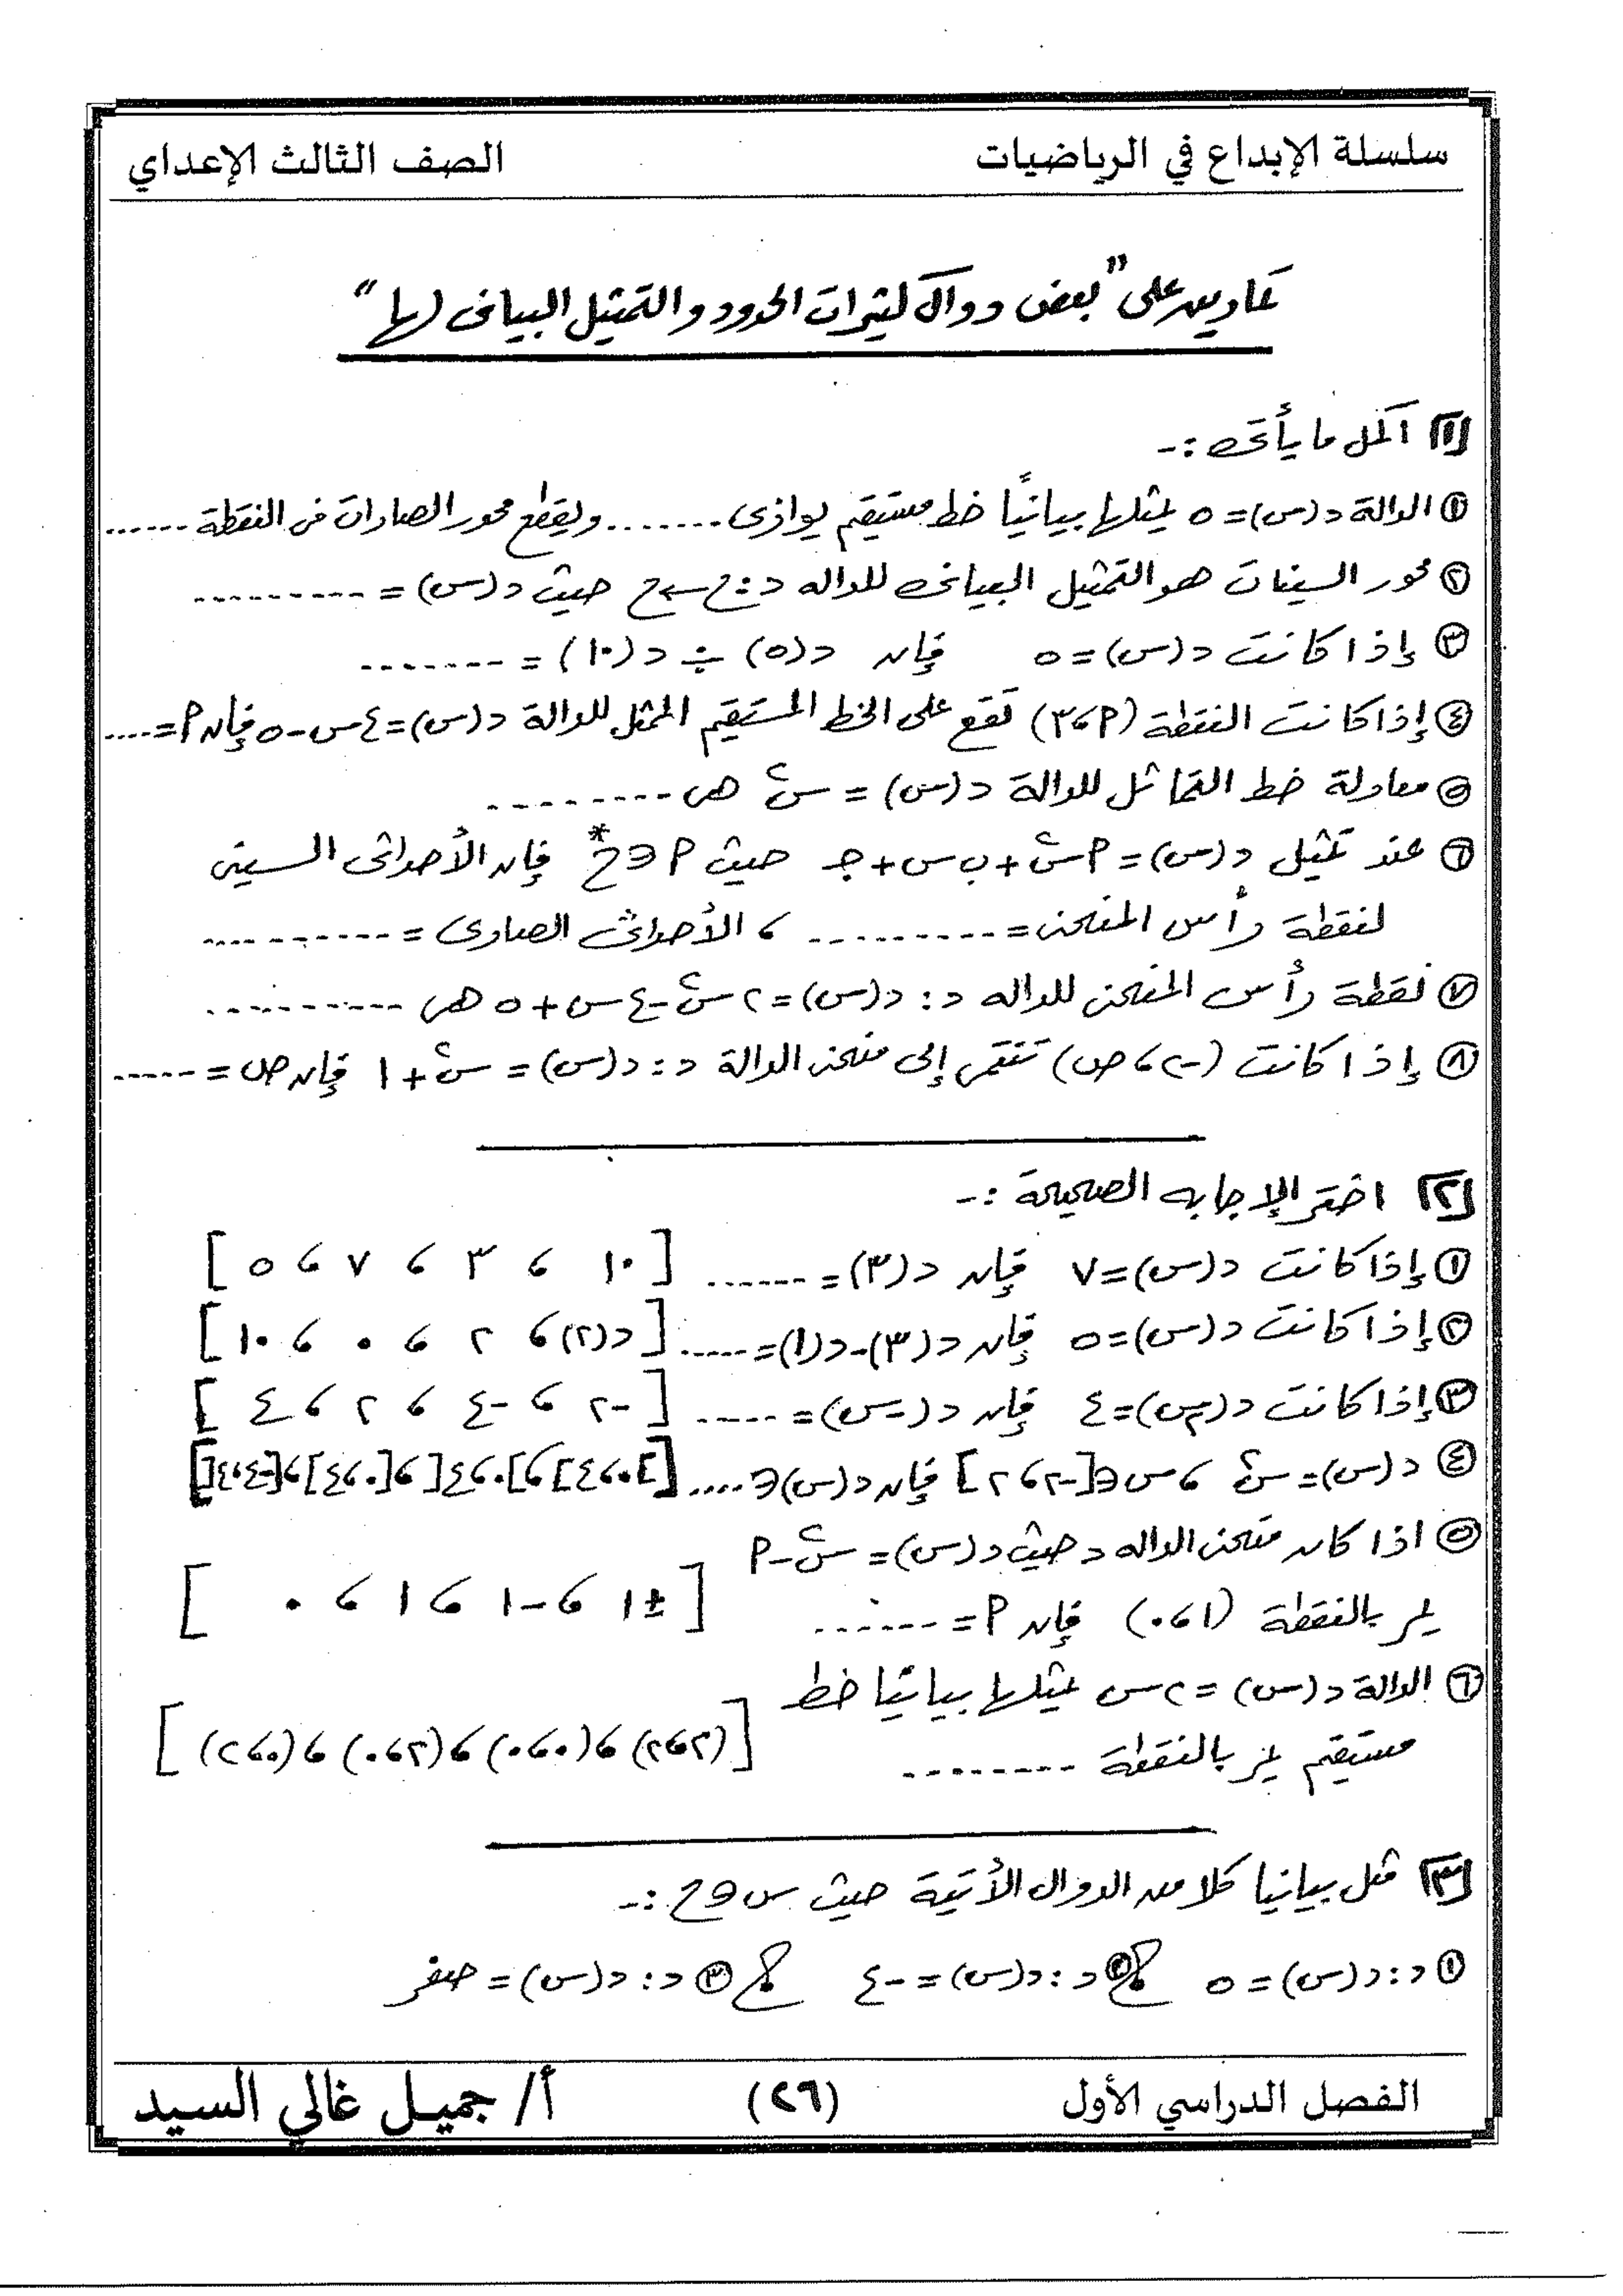 سلسلة الإبداع في الرياضيات
الصف الثالث الإعداي
تمارين على "بعض دوال كثيرات الحدود والتمثيل البيانى لها"
[١] أكمل ما يأتى :-
① الدالة د(س)= ٥ يمثلها بيانيًا خط مستقيم يوازى ........ ويقطع محور الصادات فى النقطة ......
② محور السينات هو التمثيل البيانى للداله د : ح ← ح حيث د(س) = ..........
③ إذا كانت د(س)= ٥ فإن د(٥) ÷ د(١٠) = ........
④ إذا كانت النقطة (٩،٣) تقع على الخط المستقيم الممثل للدالة د(س)= ٤س-٥ فإن ٩ = ....
⑤ معادلة خط التماثل للدالة د(س) = س٢ هى .........
⑥ عند تمثيل د(س)= ٩س٢ + ب س + جـ حيث ٩ ∈ ح* فإن الأحداثى السينى
لنقطة رأس المنحنى = .......... ، الأحداثى الصادى = ...........
⑦ نقطة رأس المنحنى للداله د : د(س)= ٢س٢ - ٤س + ٥ هى ...........
⑧ إذا كانت (-٢، ص) تنتمى إلى منحنى الدالة د : د(س) = س٢ + ١ فإن ص = .....
[٢] اختر الإجابه الصحيحة :-
① إذا كانت د(س)= ٧ فإن د(٣) = ...... [ ١٠ ، ٣ ، ٧ ، ٥ ]
② إذا كانت د(س)= ٥ فإن د(٣)-د(١) = ..... [ د(٢) ، ٢ ، ٠ ، ١٠ ]
③ إذا كانت د(س)= ٤ فإن د(-س) = ..... [ -٢ ، -٤ ، ٢ ، ٤ ]
④ د(س)= س٢ ، س ∈ [-٢، ٢] فإن د(س) ∈ ..... [ ]٠،٤] ، ]٠،٤[ ، [٠،٤] ، [-٤،٤] ]
⑤ اذا كان منحنى الداله د حيث د(س) = س٢ - ٩
يمر بالنقطة (١، ٠) فإن ٩ = ....... [ ±١ ، -١ ، ١ ، ٠ ]
⑥ الدالة د(س) = ٢س يمثلها بيانيًا خط
مستقيم يمر بالنقطة ......... [ (٢،٢) ، (٠،٠) ، (٢،٠) ، (٠،٢) ]
[٣] مثل بيانيا كلا من الدوال الأتية حيث س ∈ ح :-
① د : د(س) = ٥ ② د : د(س) = -٤ ③ د : د(س) = صفر
الفصل الدراسي الأول
(٢٦)
أ/ جميل غالي السيد